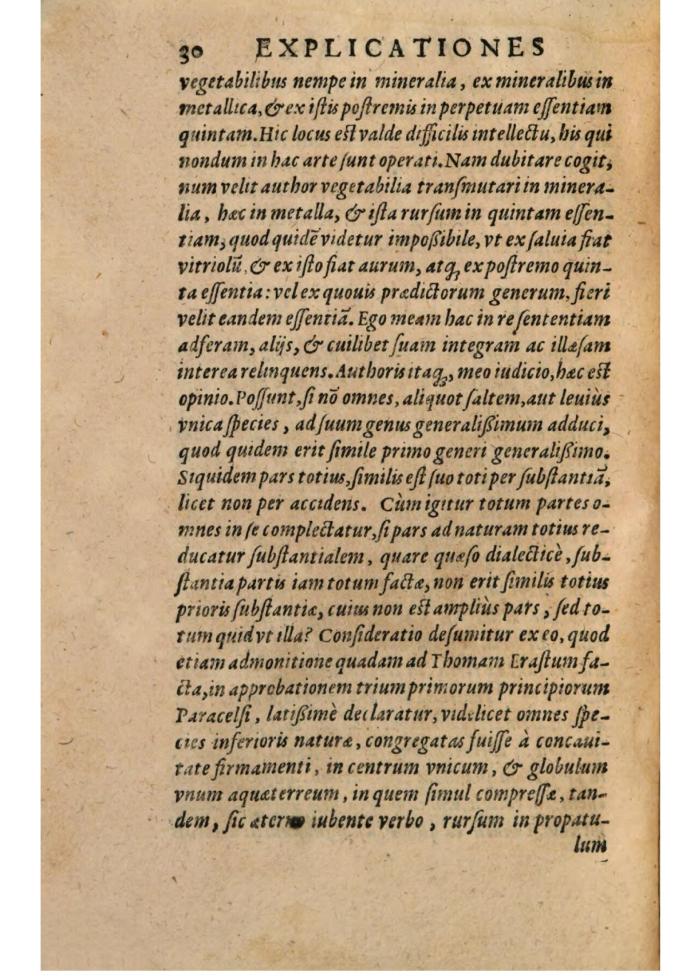 30 EXPLICATIONES
vegetabilibus nempe in mineralia, ex mineralibus in
metallica, & ex istis postremis in perpetuam essentiam
quintam. Hic locus est valde difficilis intellectu, his qui
nondum in hac arte sunt operati. Nam dubitare cogit,
num velit author vegetabilia transmutari in minera-
lia, hæc in metalla, & ista rursum in quintam essen-
tiam, quod quidē videtur impoßibile, vt ex saluia fiat
vitriolū, & ex isto fiat aurum, atq; ex postremo quin-
ta essentia: vel ex quouis prædictorum generum, fieri
velit eandem essentiā. Ego meam hac in re sententiam
adferam, alijs, & cuilibet suam integram ac illæsam
interea relinquens. Authoris itaq;, meo iudicio, hæc est
opinio. Possunt, si nō omnes, aliquot saltem, aut leuiùs
vnica species, ad suum genus generalißimum adduci,
quod quidem erit simile primo generi generalißimo.
Siquidem pars totius, similis est suo toti per substantiā,
licet non per accidens. Cùm igitur totum partes o-
mnes in se complectatur, si pars ad naturam totius re-
ducatur substantialem, quare quæso dialecticè, sub-
stantia partis iam totum factæ, non erit similis totius
prioris substantiæ, cuius non est amplius pars, sed to-
tum quid vt illa? Consideratio desumitur ex eo, quod
etiam admonitione quadam ad Thomam Erastum fa-
cta, in approbationem trium primorum principiorum
Paracelsi, latißimè declaratur, videlicet omnes spe-
cies inferioris naturæ, congregatas fuisse à concaui-
tate firmamenti, in centrum vnicum, & globulum
vnum aquæterreum, in quem simul compressæ, tan-
dem, sic æterno iubente verbo, rursum in propatu-
lum